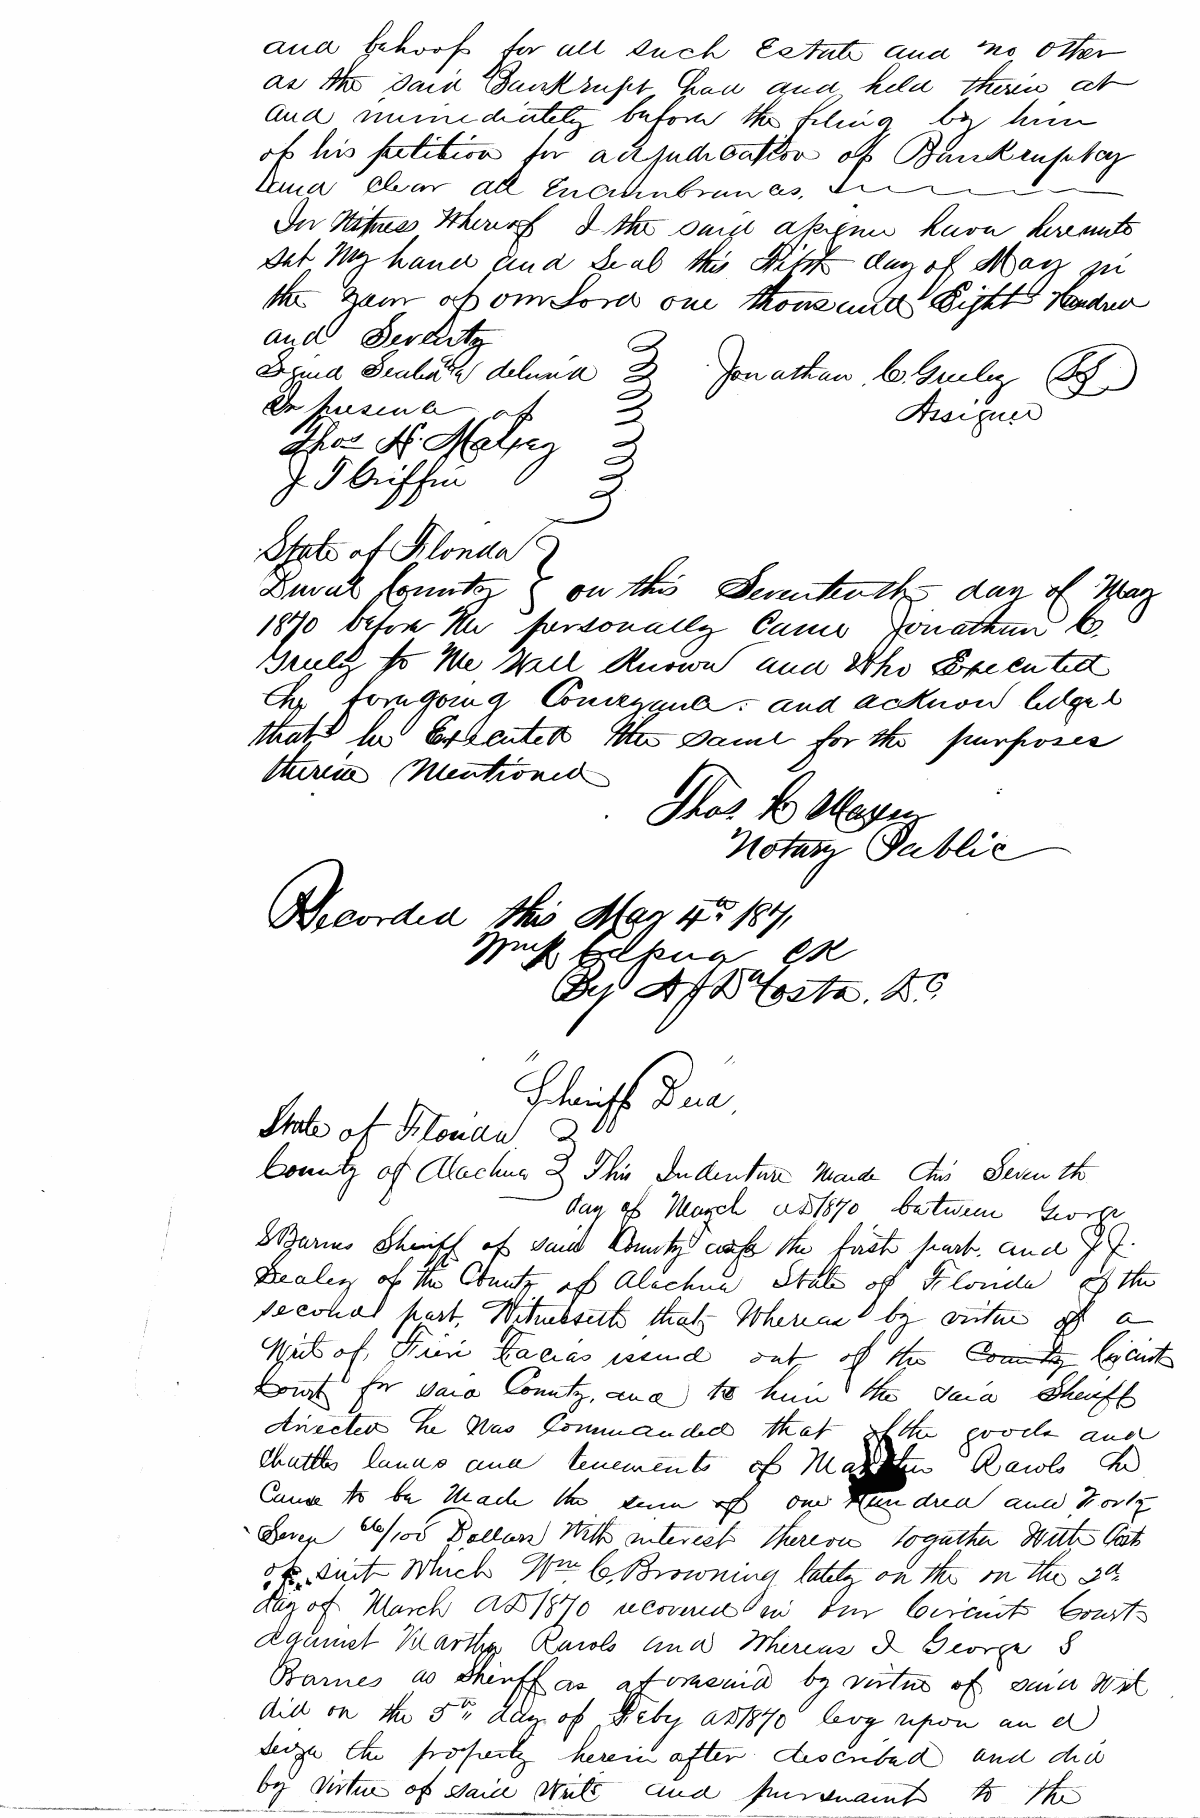 and behoof for all such Estate and no other
as the said Bankrupt had and held therein at
and immediately before the filing by him
of his petition for adjudication of Bankruptcy
and clear all Encumbrances.
In Witness Whereof I the said assignee have hereunto
set My hand and Seal this Fifth day of May in
the year of our Lord one thousand Eight Hundred
and Seventy
Signed Sealed & delivered Jonathan C. Greeley
In presence of Assignee
Thos
J. T Griffin
State of Florida
Duval County on this Seventeenth day of May
1870 before Me personally Came Jonathan C.
Greeley to Me Well Known and Who Executed
the foregoing Conveyance. and acknowledged
that he Executed the same for the purposes
therein Mentioned
Thos
Notary Public
Recorded this May 4th 1871
Clk
By A J DaCosta. D.C.
"Sheriff Deed"
State of Florida
County of Alachua This Indenture Made this Seventh
day of March AD 1870 between George
S Barnes Sheriff of said County of the first part. and J. J.
Dealey of the County of Alachua State of Florida of the
second part, Witnesseth that Whereas by virtue of a
Writ of Fieri Facias issued out of the County Circuit
Court for said County, and to him the said Sheriff
directed he was Commanded that of the goods and
Chattles lands and tenements of Martha Rawls he
Cause to be Made the sum of one Hundred and Forty
Seven 66/100 Dollars With interest thereon together With Costs
of suit Which Wm C. Browning lately on the on the 2d
day of March AD 1870 recovered in our Circuit Court
against Martha Rawls and Whereas I George S
Barnes as Sheriff as aforesaid by virtue of said Writ
did on the 5th day of Feby AD 1870 levy upon and
seize the property herein after described and did
by virtue of said Writ and pursuant to the